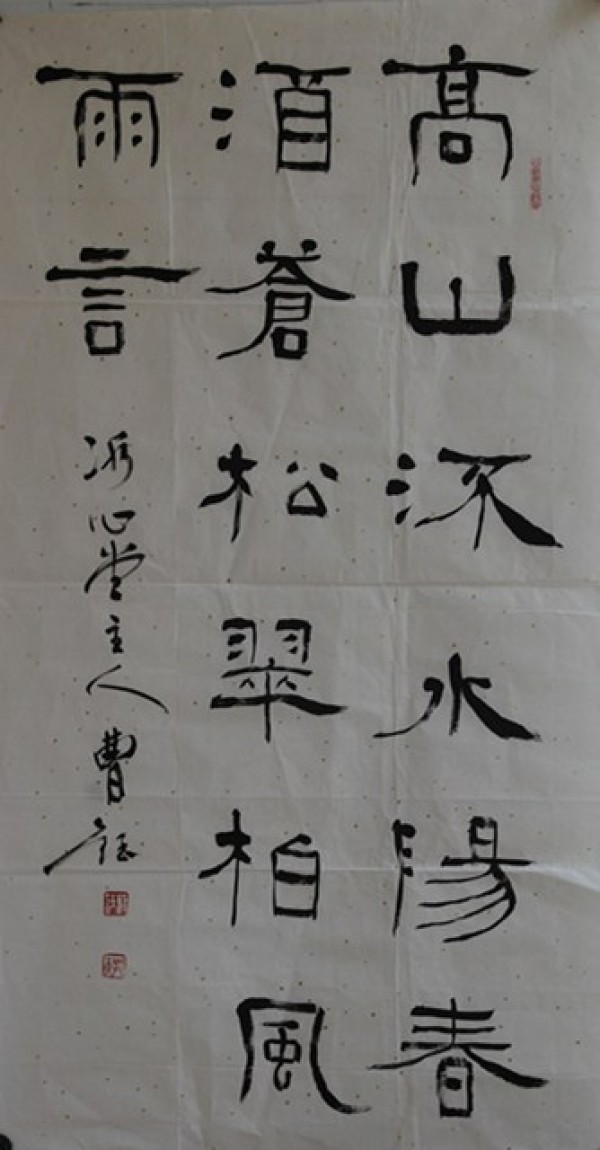 高山㳅水陽春
酒蒼松翠柏風
雨言
心堂主人曹